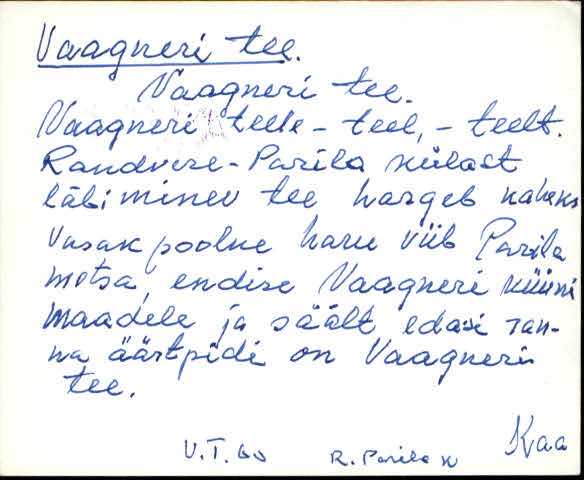 Vaagneri tee.
Vaagneri tee.
Vaagneri teele - teel, - teelt.
Randvere-Parila külast
läbiminev tee hargeb kaheks
Vasakpoolne haru viib Parila
metsa, endise Vaagneri küüni
maadele ja säält edasi ran-
na äärtpidi on Vaagneri
tee.
Kaa
V.T. 60 R. Parila k